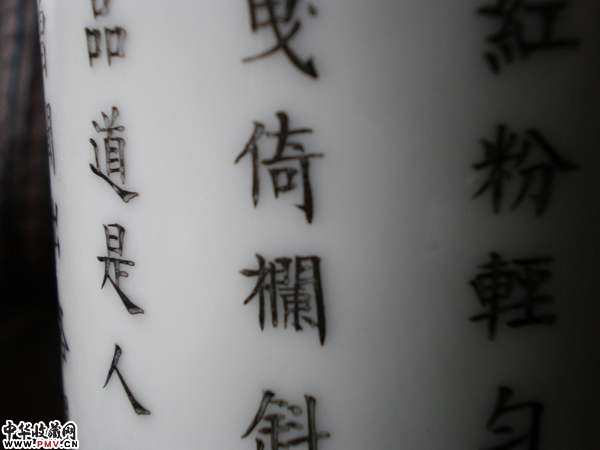 紅粉輕勻
曳倚欄斜
品道是人
中华收藏网
WWW.PMV.CN